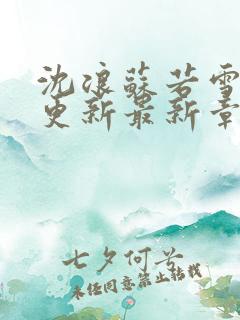 沈浪蘇若雪
更新最新章
七夕何兮
未经同意禁止转载